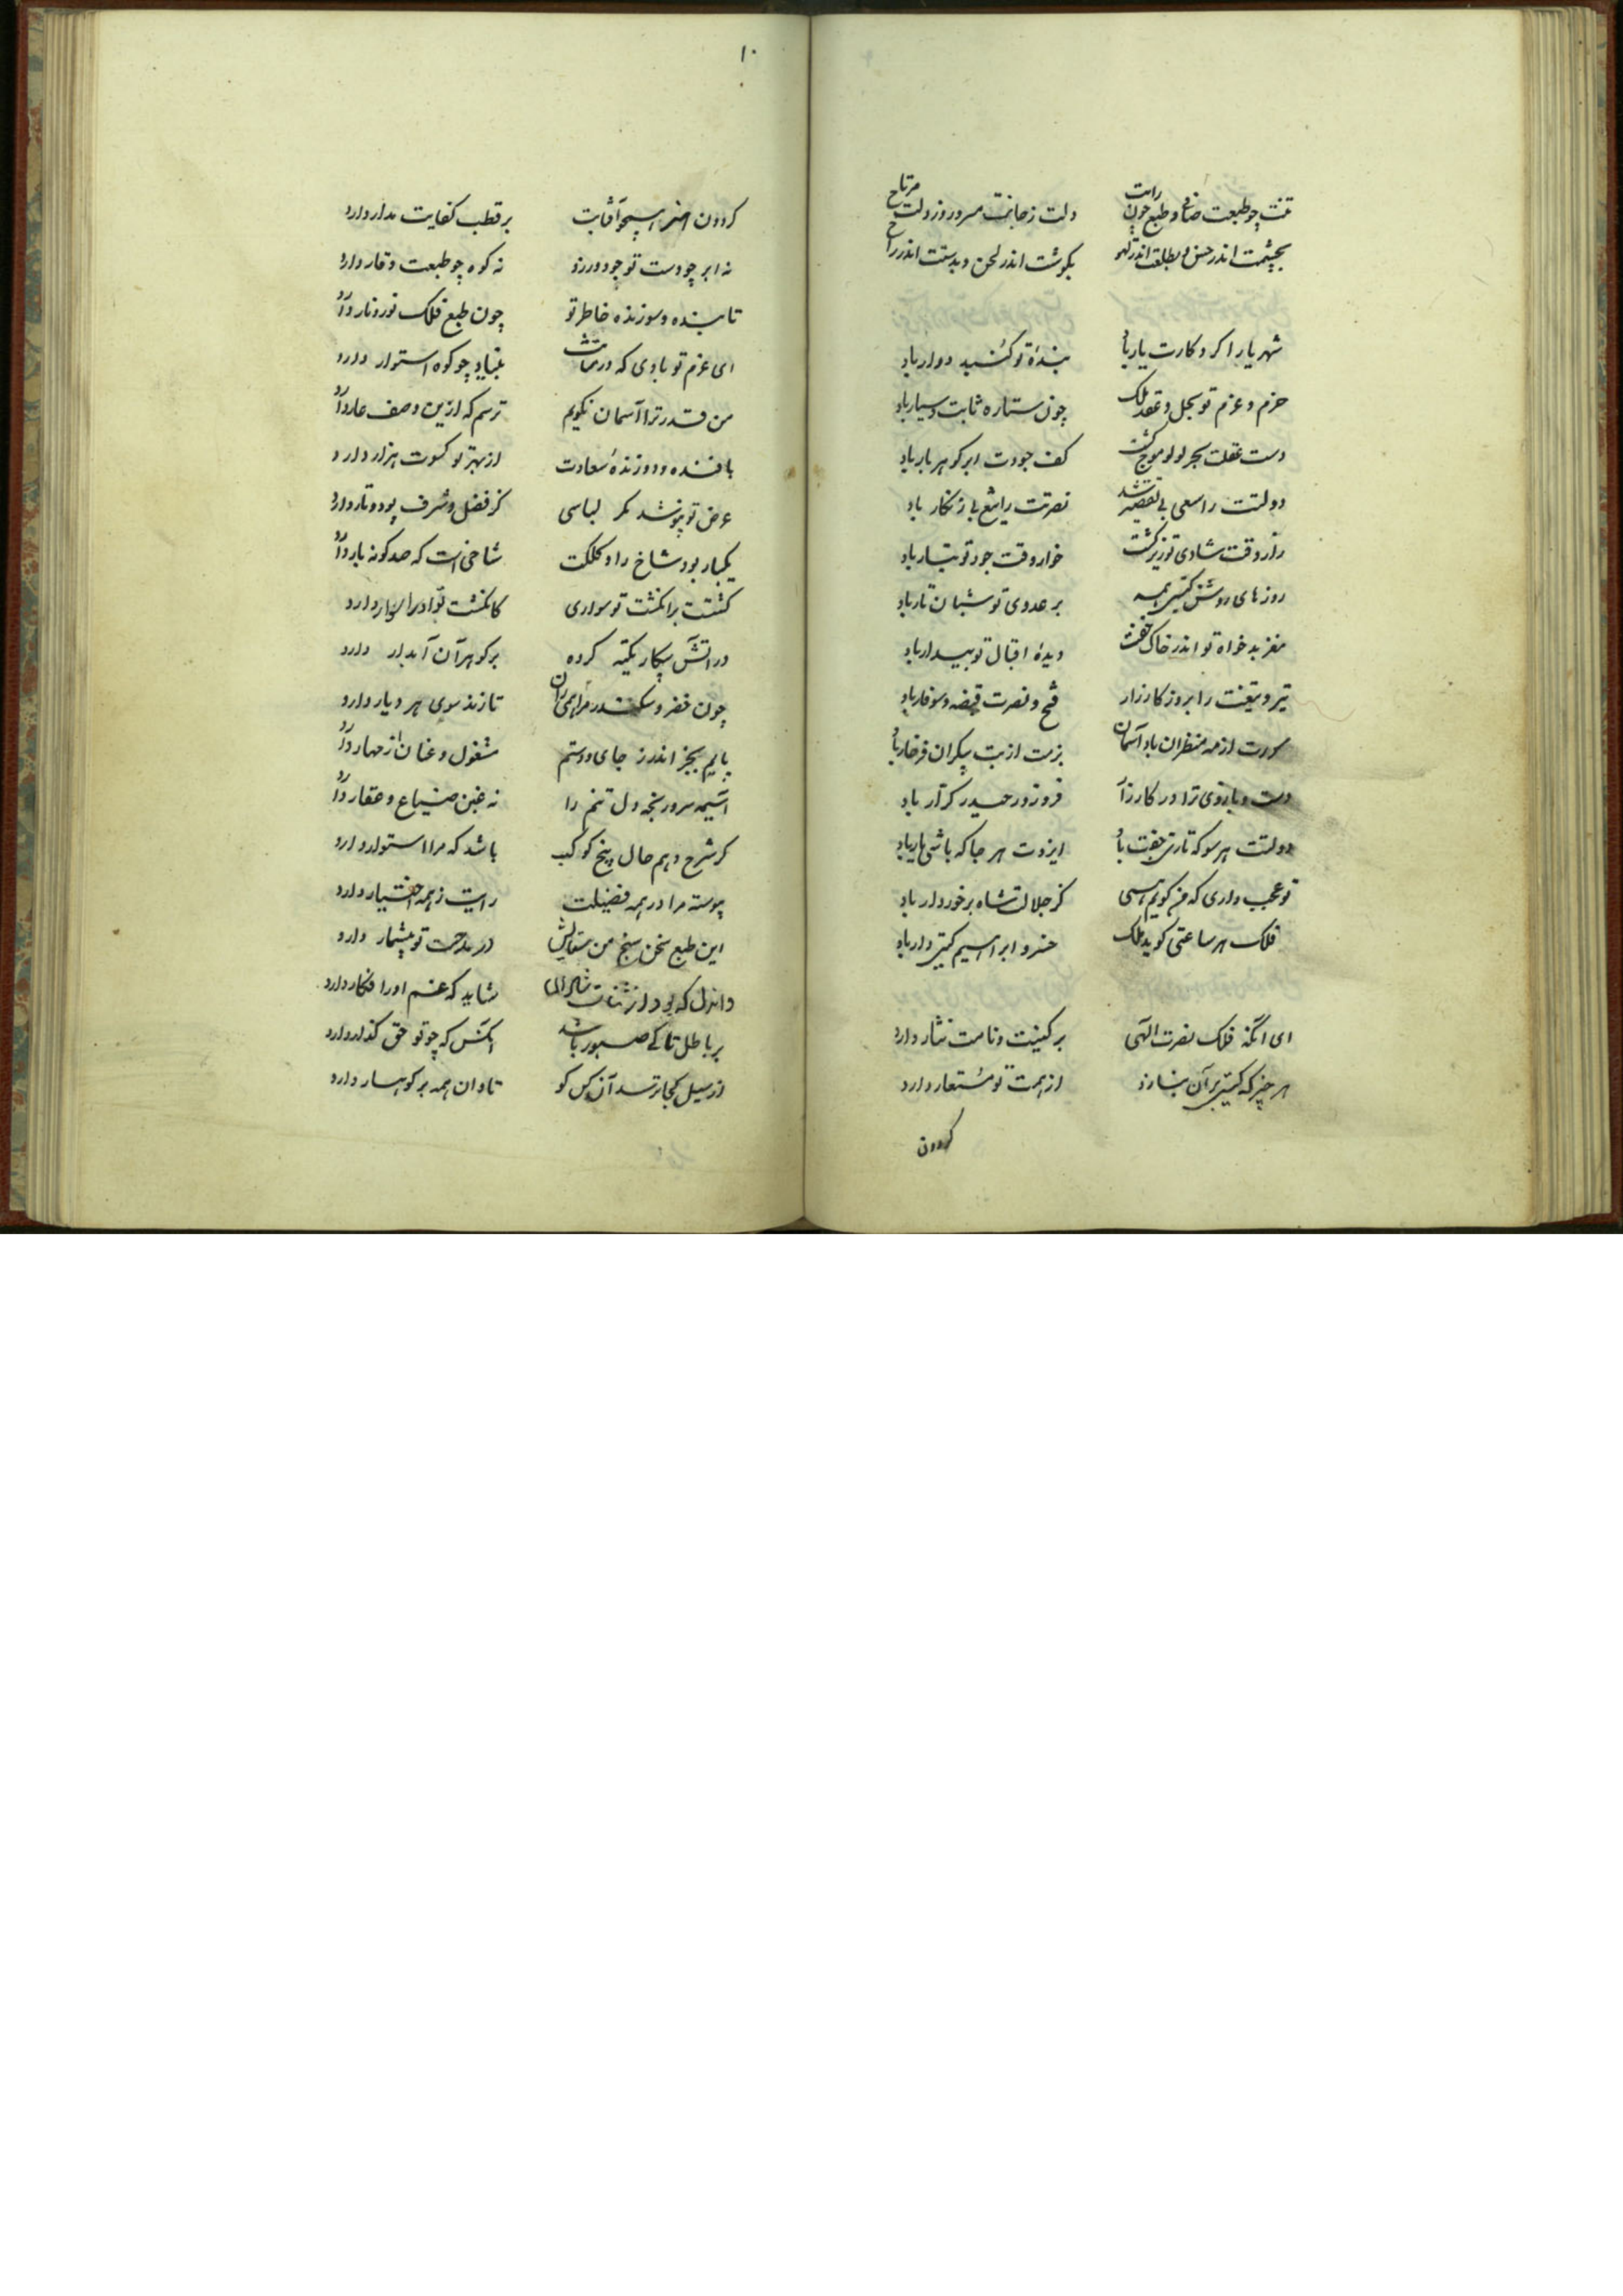 تنت چو طبعت صافی و طبع چون رایت دلت ز جانت مسرور و ز دلت مرتاح
بچشمت اندر حسن و بطلعت اندر لهو بگوشت اندر لحن و بدستت اندر راح
شهریارا کردکارت یار باد بندهٔ تو کنبد دوار باد
حزم و عزم تو بحل و عقد ملک چون ستاره ثابت و سیار باد
دست عقلت بحر لولو موج کشت کف جودت ابر کوهر بار باد
دولتت را سعی بی تقصیر شد نصرتت را تیغ بی زنکار باد
زار وقت شادی تو زیر کشت خوار وقت جود تو دینار باد
روزهای روشن کیتی همه بر عدوی تو شبان تار باد
مغز بدخواه تو اندر خاک خفت دیدهٔ اقبال تو بیدار باد
تیر و تیغت را بروز کارزار فتح و نصرت قبضه و سوفار باد
از مه منظران باد آسمان بزمت از بت پیکران فرخار باد
دست و بازوی ترا در کارزار فر و زور حیدر کرار باد
دولتت هر سو که تازی جفت باد ایزدت هر جا که باشی یار باد
تو عجب داری که من کویم همی کز جلالت شاه برخوردار باد
فلک هر ساعتی کوید ملک خسرو ابراهیم کیتی دار باد
ای انکه فلک نصرت الهی بر کنیت و نامت نثار دارد
هر چیز که کیتی بر آن بنازد از همت تو مستعار دارد
کردون
۱۰
کردون اخضر همچو آفتابت بر قطب کفایت مدار دارد
نه ابر چو دست تو جود ورزد نه کوه چو طبعت وقار دارد
تابنده و سوزنده خاطر تو چون طبع فلک نور و نار دارد
ای عزم تو بادی که در بنیاد چو کوه استوار دارد
من قدر ترا آسمان نکویم ترسم که ازین وصف عار دارد
بافنده و دوزندهٔ سعادت از بهر تو کسوت هزار دارد
عرض تو نپوشد مکر لباسی کز فضل و شرف پود و تار دارد
یکبار بود شاخ را و کلکت شاخی است که صد کونه بار دارد
کشتت بر انکشت تو سواری کانکشت تو او را سوار دارد
در آتش پیکار تکیه کرده بر کوهر آن آبدار دارد
چون خضر و سکندر مرا همی ران تازنده سوی هر دیار دارد
پایم بجز اندر جای و دستم مشغول و عنان از مهار دارد
آسیمه سر و رنجه دل تنم را نه غبن ضیاع و عقار دارد
کر شرح دهم حال پنج کوکب باشد که مرا استوار دارد
پیوسته مرا در همه فضیلت رایت ز همه اختیار دارد
این طبع سخن سنج من در مدحت تو بیشمار دارد
و اندل که بود از ثنات شاید که غم او را فکار دارد
بر باطل تا کی صبور باشد آنکس که چو تو حق کذار دارد
از سیل کجا ترسد آن کس کو تاوان همه بر کوهسار دارد